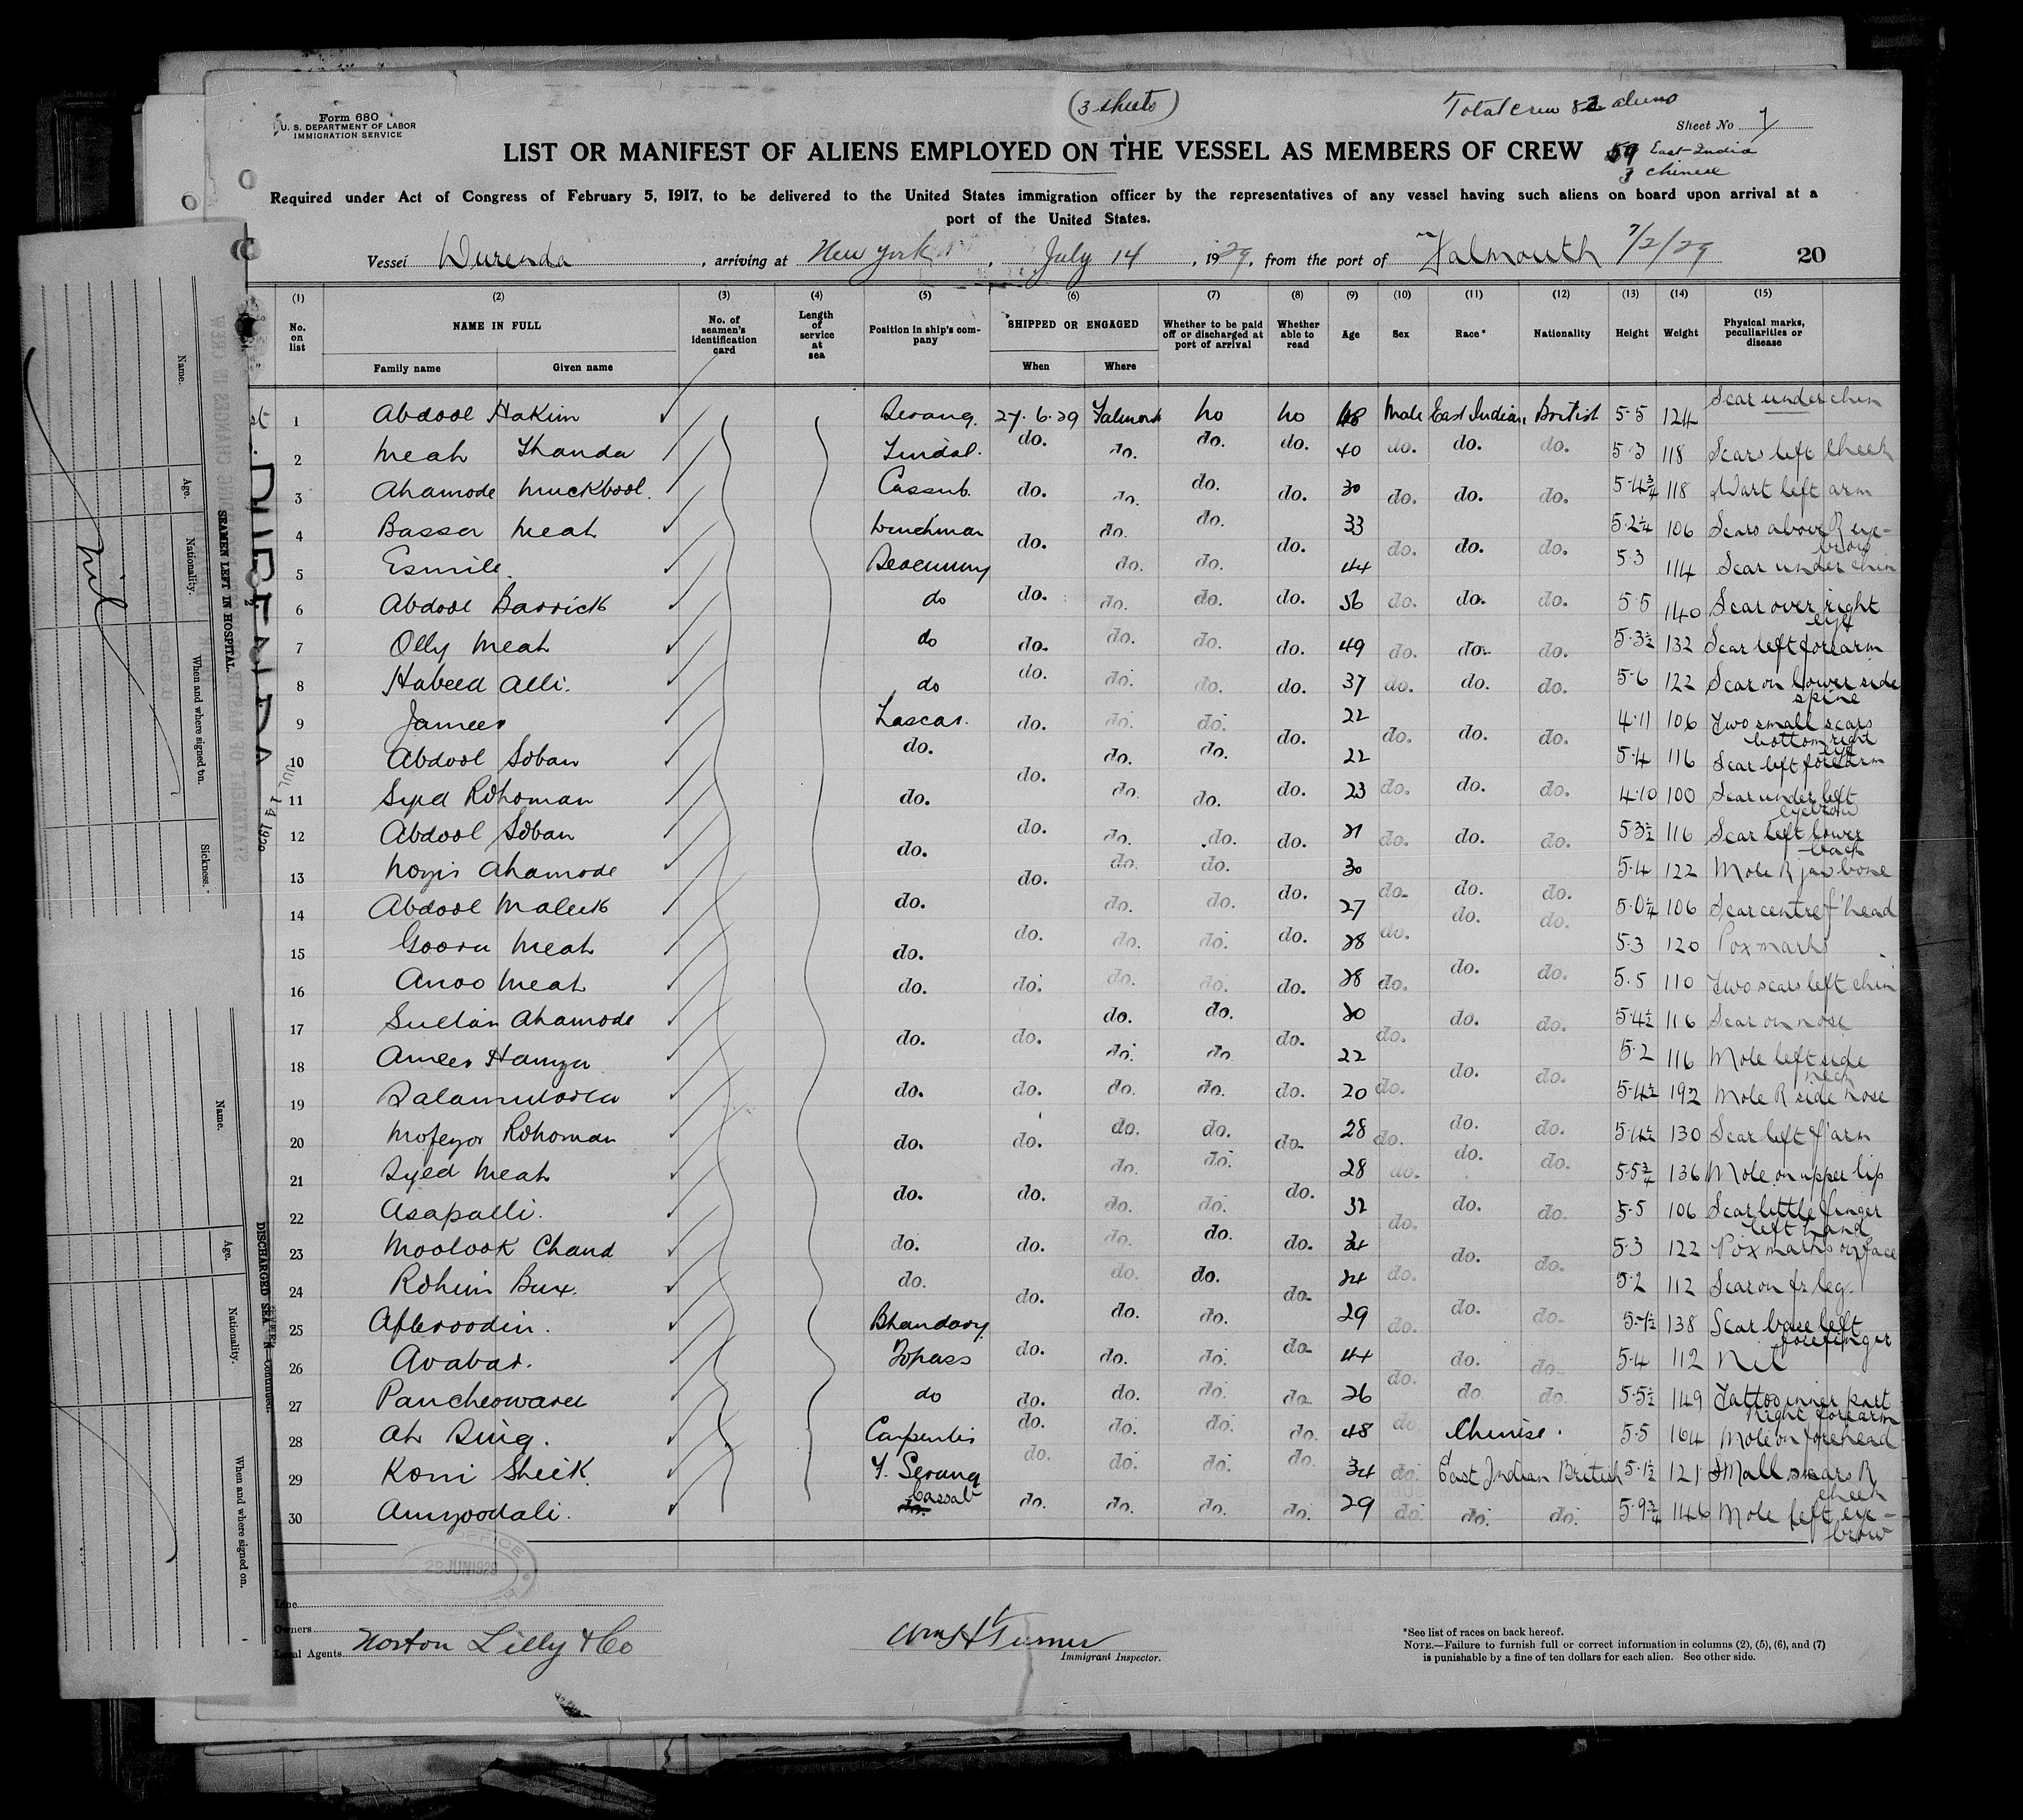 (3 sheets)
Total crew 82 aliens
Form 680
U. S. DEPARTMENT OF LABOR
IMMIGRATION SERVICE
Sheet No 1
LIST OR MANIFEST OF ALIENS EMPLOYED ON THE VESSEL AS MEMBERS OF CREW
59 East India
3 Chinese
Required under Act of Congress of February 5, 1917, to be delivered to the United States immigration officer by the representatives of any vessel having such aliens on board upon arrival at a
port of the United States.
Vessel Durenda, arriving at New York, July 14, 1929, from the port of Falmouth 7/2/29 20
(1) (2) (3) (4) (5) (6) (7) (8) (9) (10) (11) (12) (13) (14) (15)
No. on list NAME IN FULL Family name Given name No. of seamen's identification card Length of service at sea Position in ship's company SHIPPED OR ENGAGED When Where Whether to be paid off or discharged at port of arrival Whether able to read Age Sex Race* Nationality Height Weight Physical marks, peculiarities or disease
1 Abdool Hakim Serang. 27.6.29 Falmouth No No 48 Male East Indian British 5-5 124 Scar under chin
2 Meah Thanda Tindal. do. do. do. do. 40 do. do. do. 5-3 118 Scars left cheek
3 Ahamode Muckbool. Cassub. do. do. do. do. 30 do. do. do. 5-4¾ 118 Wart left arm
4 Basser Meah Winchman do. do. do. do. 33 do. do. do. 5-2¼ 106 Scars above R eye-brow
5 Esmile Seacunny do. do. 44 5-3 114 Scar under chin
6 Abdool Barrick do do. do. do. do. 56 do. do. do. 5-5 140 Scar over right eye
7 Olly Meah do do. do. do. do. 49 do. do. do. 5-3½ 132 Scar left forearm
8 Habeed Alli. do do. do. do. do. 37 do. do. do. 5-6 122 Scar on lower side spine
9 Jameer Lascar. do. do. do. do. 22 do. do. do. 4-11 106 Two small scars bottom right
10 Abdool Soban do. do. do. do. 22 5-4 116 Scar left forearm
11 Syed Rohoman do. do. do. do. 23 do. do. do. 4-10 100 Scar under left eyebrow
12 Abdool Soban do. do. do. do. do. 21 do. do. do. 5-3½ 116 Scar left lower back
13 Ahamode do. do. do. 30 5-4 122 Mole R jaw bone
14 Abdool Maleek do. do. do. do. 27 do. do. do. 5-0¼ 106 Scar centre f'head
15 Goora Meah do. do. do. do. do. 28 do. do. do. 5-3 120 Pox marks
16 Anoo Meah do. do. do. do. do. 28 do. do. do. 5-5 110 Two scars left chin
17 Sultan Ahamode do. do. do. do. do. 20 do. do. do. 5-4½ 116 Scar on nose
18 Ameer Hamza do. do. 22 do. do. 5-2 116 Mole left side neck
19 do. do. do. do. do. 20 do. 5-4½ 192 Mole R side nose
20 Rohoman do. do. do. do. do. 28 do. do. do. 5-4½ 130 Scar left f'arm
21 Syed Meah do. do. 28 do. do. do. 5-5¾ 136 Mole on upper lip
22 Asapalli. do. do. do. do. do. 32 do. do. do. 5-5 106 Scar little finger left hand
23 Moolook Chand do. do. do. do. do. 34 do. do. 5-3 122 Pox marks on face
24 Rohim Bux. do. do. do. do. do. 24 do. do. 5-2 112 Scar on fr leg.
25 Bhandary do. do. 29 do. do. do. 5-1½ 138 Scar base left forefinger
26 Avabar. Topass do. do. do. do. 44 do. do. do. 5-4 112 Nil
27 do do. do. do. do. 26 do. do. 5-5½ 149 Tattoo inner part right forearm
28 Ah Sing. Carpenter do. do. do. do. 48 do. Chinese. 5-5 164 Mole on forehead
29 Koni Sheik. F. Serang do. do. do. do. 34 do. East Indian British 5-1½ 121 Small scars R cheek
30 Amyoodali. Cassab do. do. do. do. 29 do. do. do. 5-9¾ 146 Mole left eye-brow
DURENDA
JUL 14 1929
29 JUN 1929
Line
Owners
Local Agents Norton Lilly & Co
Wm H Turner
Immigrant Inspector.
*See list of races on back hereof.
NOTE.—Failure to furnish full or correct information in columns (2), (5), (6), and (7)
is punishable by a fine of ten dollars for each alien. See other side.
SEAMEN LEFT IN HOSPITAL.
Name. Age. Nationality. When and where signed on. Sickness.
Nil
DISCHARGED SEAMEN—Continued.
Name. Age. Nationality. When and where signed on.